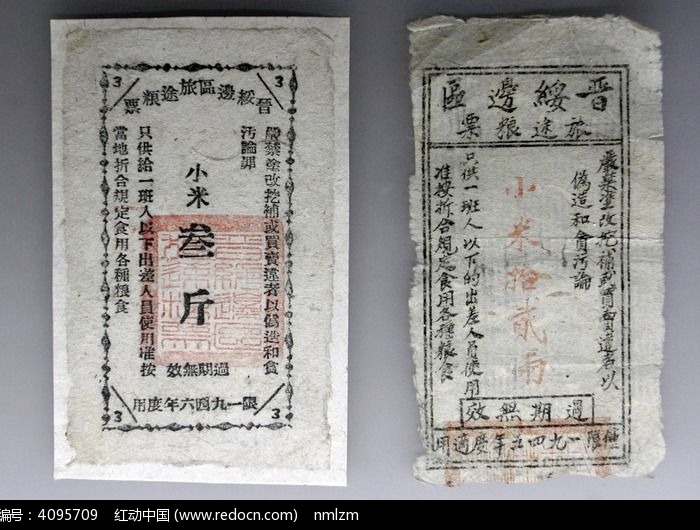 3 3
晉綏邊區旅途粮票
嚴禁塗改挖補或買賣違者以僞造和貪
污論罪
小米
叁斤
只供給一班人以下出差人員使用准按
當地折合規定食用各種粮食
過期無效
限一九四六年度用
3 3
晋綏邊區
旅途粮票
嚴禁塗改挖補或買賣違者以
偽造和貪汚論
小米拾貳兩
只供一班人以下的出差人員使用
准按折合規定食用各種粮食
過期無效
限一九四五年度適用
编号：4095709 红动中国 (www.redocn.com) nmlzm